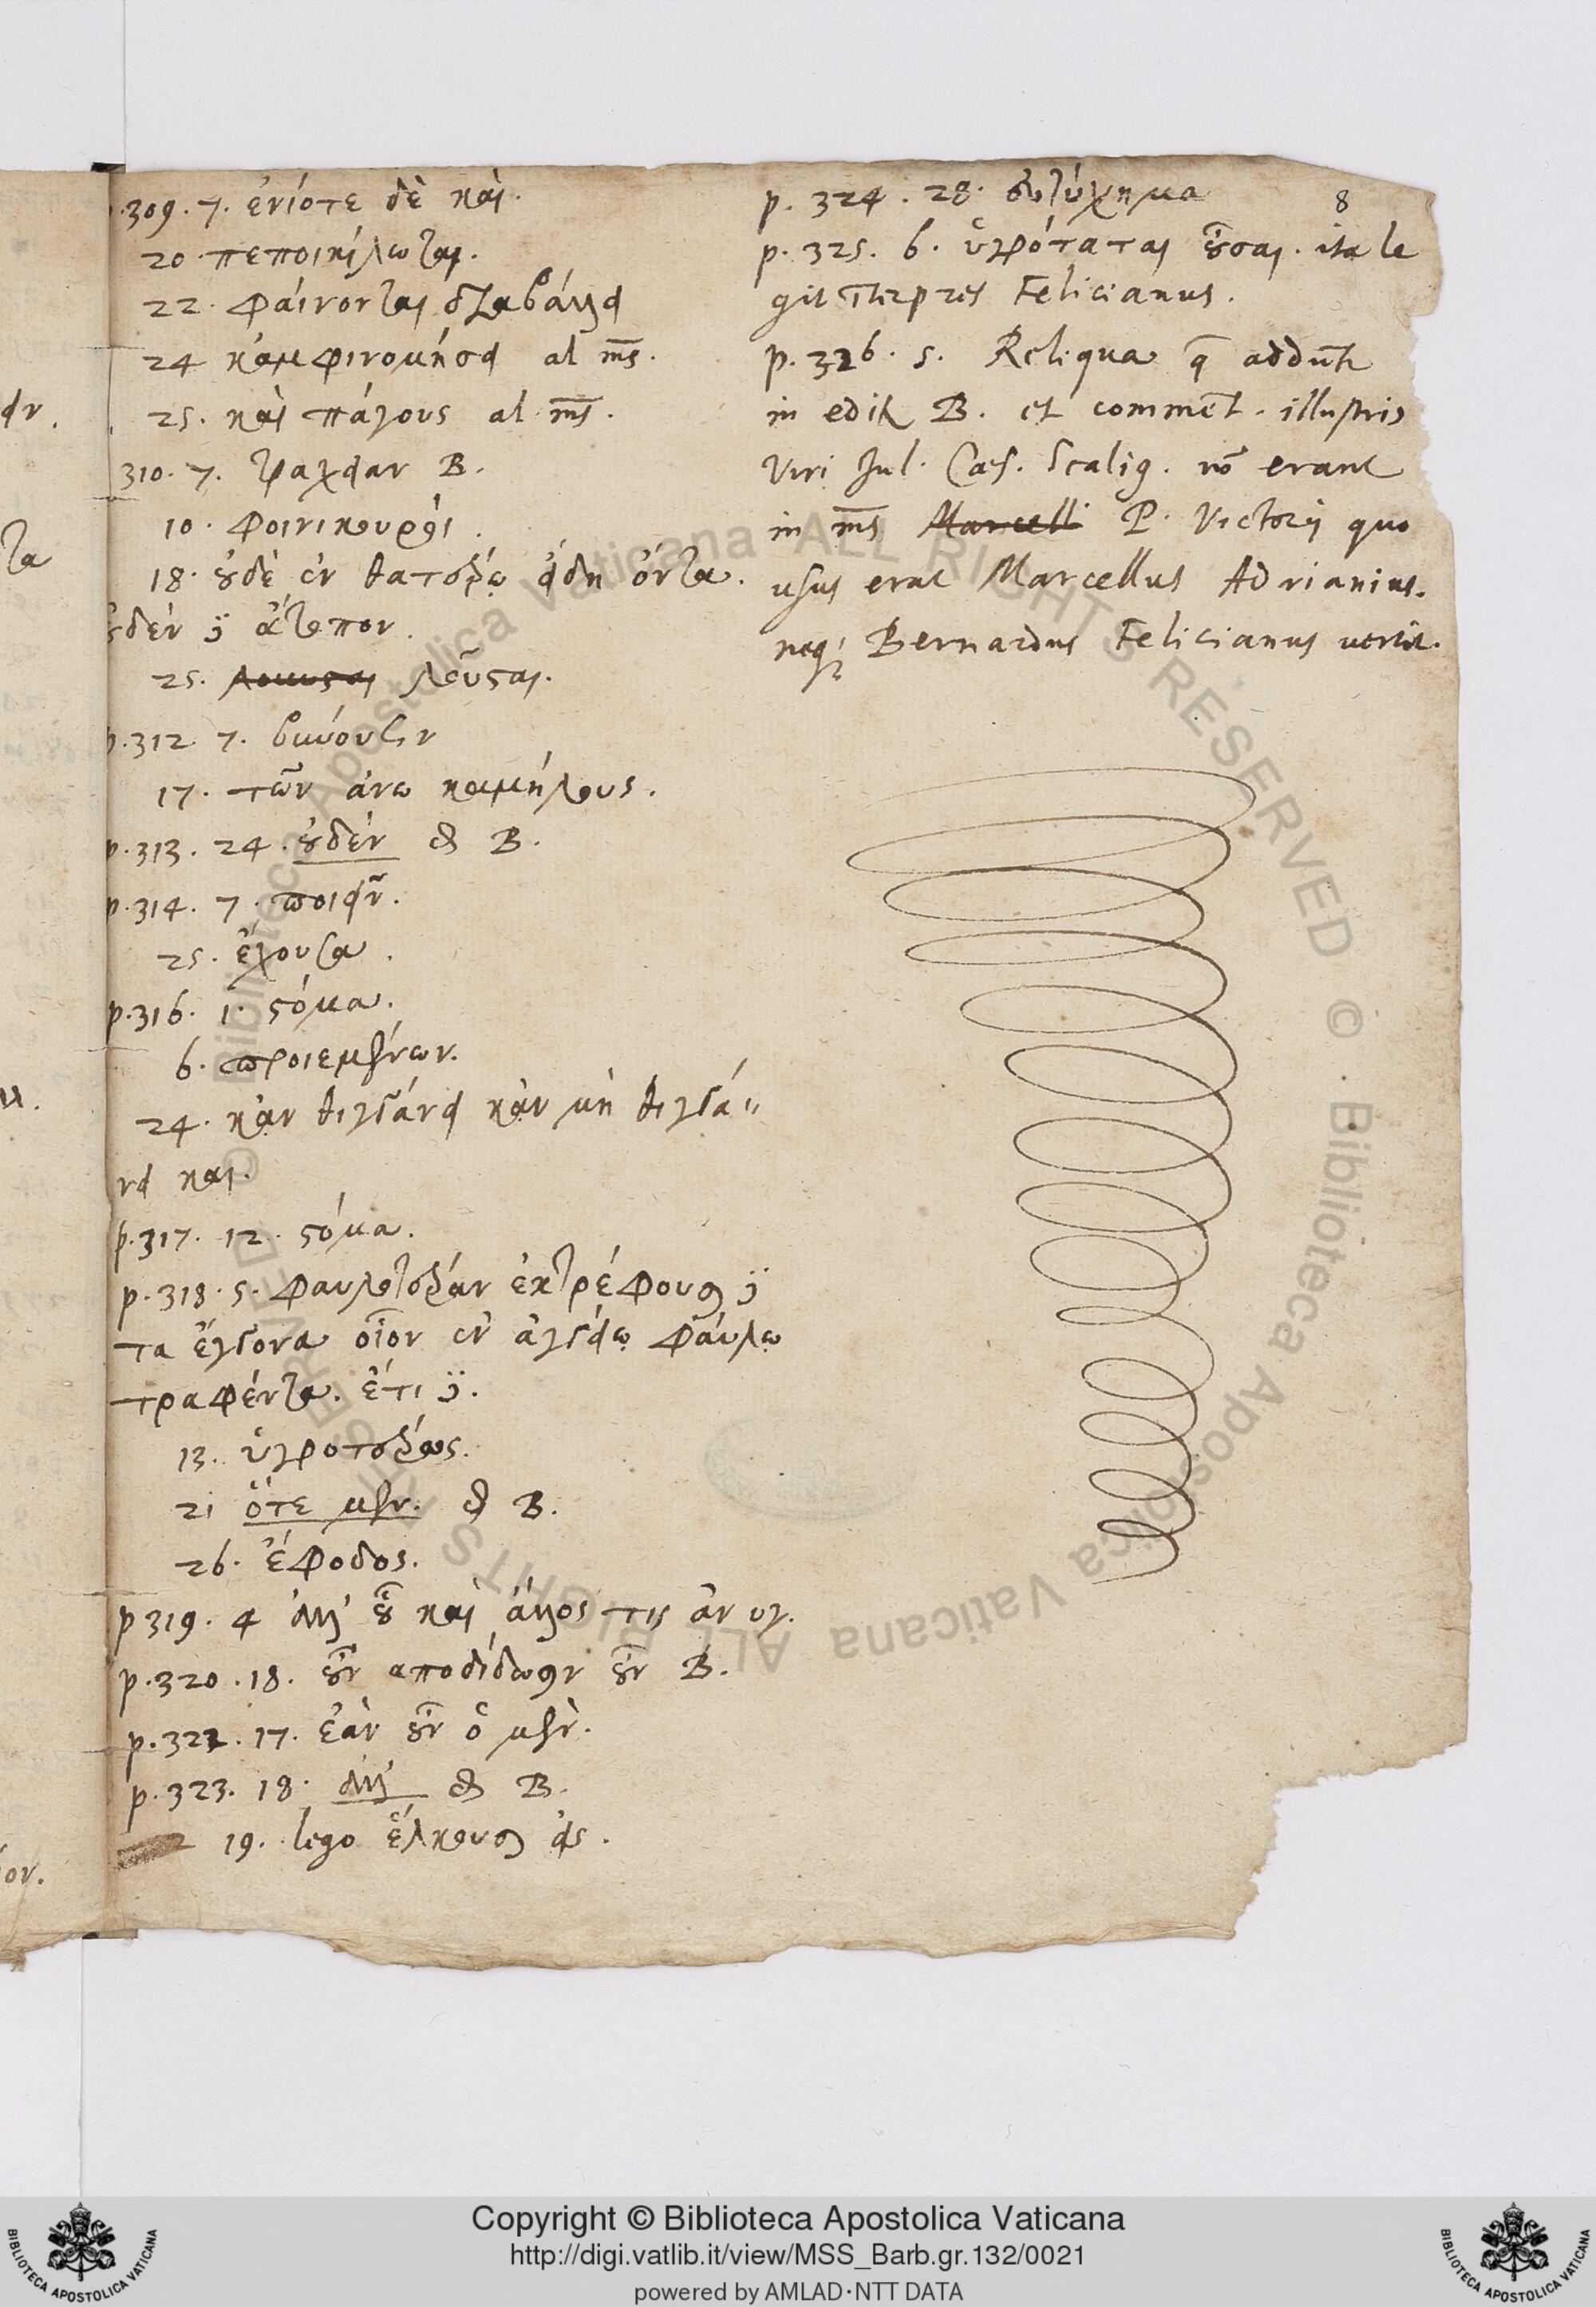 p.309. 7. ἐνίοτε δὲ καὶ.
20. πεποικίλωται.
22. φαίνονται
24 al ms.
25. καὶ πάγους al. ms.
310. 7. B.
10. φοινικουροὶ.
18. οὐδὲ ἐν θατέρῳ εἴδη ὄντα.
οὐδὲν ἄτοπον.
25. λοῦσαι.
p.312. 7.
17. τῶν ἄνω καμήλους.
p.313. 24. οὐδὲν B.
p.314. 7. ποιεῖν.
25. ἔχουσα.
p.316. 1. στόμα.
6. προιεμένων.
24. κἂν θιγγάνει κἂν μὴ θιγγά
νει και.
p.317. 12. στόμα.
p.318. 5. ἐκτρέφουσι
τα ἔγγονα οἷον ἐν ἀγγείῳ φαύλῳ
τραφέντα. ἔτι
13. ὑγροτέρως.
21 ὅτε μεν. B.
26. ἔφοδος.
p 319. 4 ἀλλ' οὗ καὶ ἄλλος τις ἂν
p.320. 18. οὖν αποδίδωσιν οὖν B.
p.322. 17. ἐὰν οὖν ὁ μὲν.
p.323. 18. ἀλλ' B.
19. lego ἕλκουσι εἰς.
8
p. 324. 28. εὐτύχημα
p. 325. 6. ὑγρόταται οὖσαι. ita le
git Īterpres Felicianus.
p. 326. 5. Reliqua q̄ addunt
in edit B. et comment. illustris
Viri Jul. Caes. Scalig. nō erant
in ms Marcelli P. Victorij quo
usus erat Marcellus Adrianius.
neq; Bernardus Felicianus vertit.
© Biblioteca Apostolica Vaticana ALL RIGHTS RESERVED © Biblioteca Apostolica Vaticana ALL RIGHTS RESERVED
Copyright © Biblioteca Apostolica Vaticana
http://digi.vatlib.it/view/MSS_Barb.gr.132/0021
powered by AMLAD·NTT DATA
BIBLIOTECA APOSTOLICA VATICANA
BIBLIOTECA APOSTOLICA VATICANA